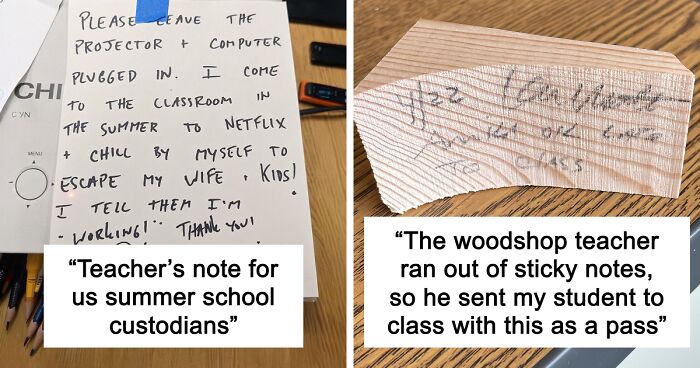 PLEASE LEAVE THE
PROJECTOR + COMPUTER
PLUGGED IN. I COME
TO THE CLASSROOM IN
THE SUMMER TO NETFLIX
+ CHILL BY MYSELF TO
ESCAPE MY WIFE + KIDS!
I TELL THEM I'M
"WORKING!" THANK YOU!
CHI
MENU
“Teacher’s note for
us summer school
custodians”
4/22
TO CLASS
“The woodshop teacher
ran out of sticky notes,
so he sent my student to
class with this as a pass”